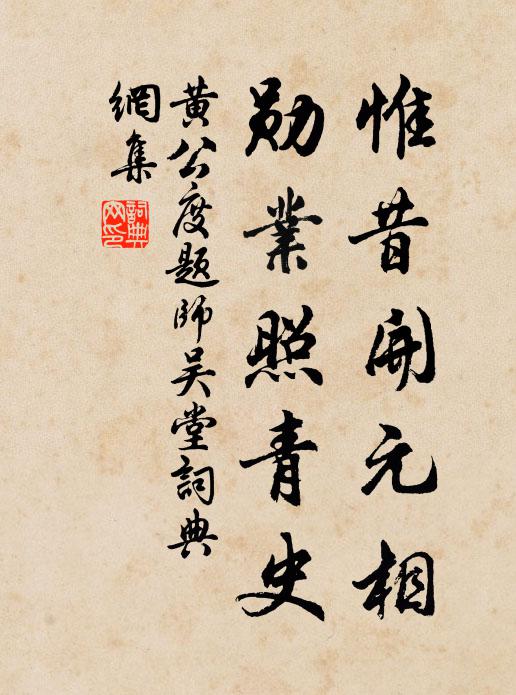 惟昔開元相
勛業照青史
黃公度題師吴堂詞典
網集
詞典
网印